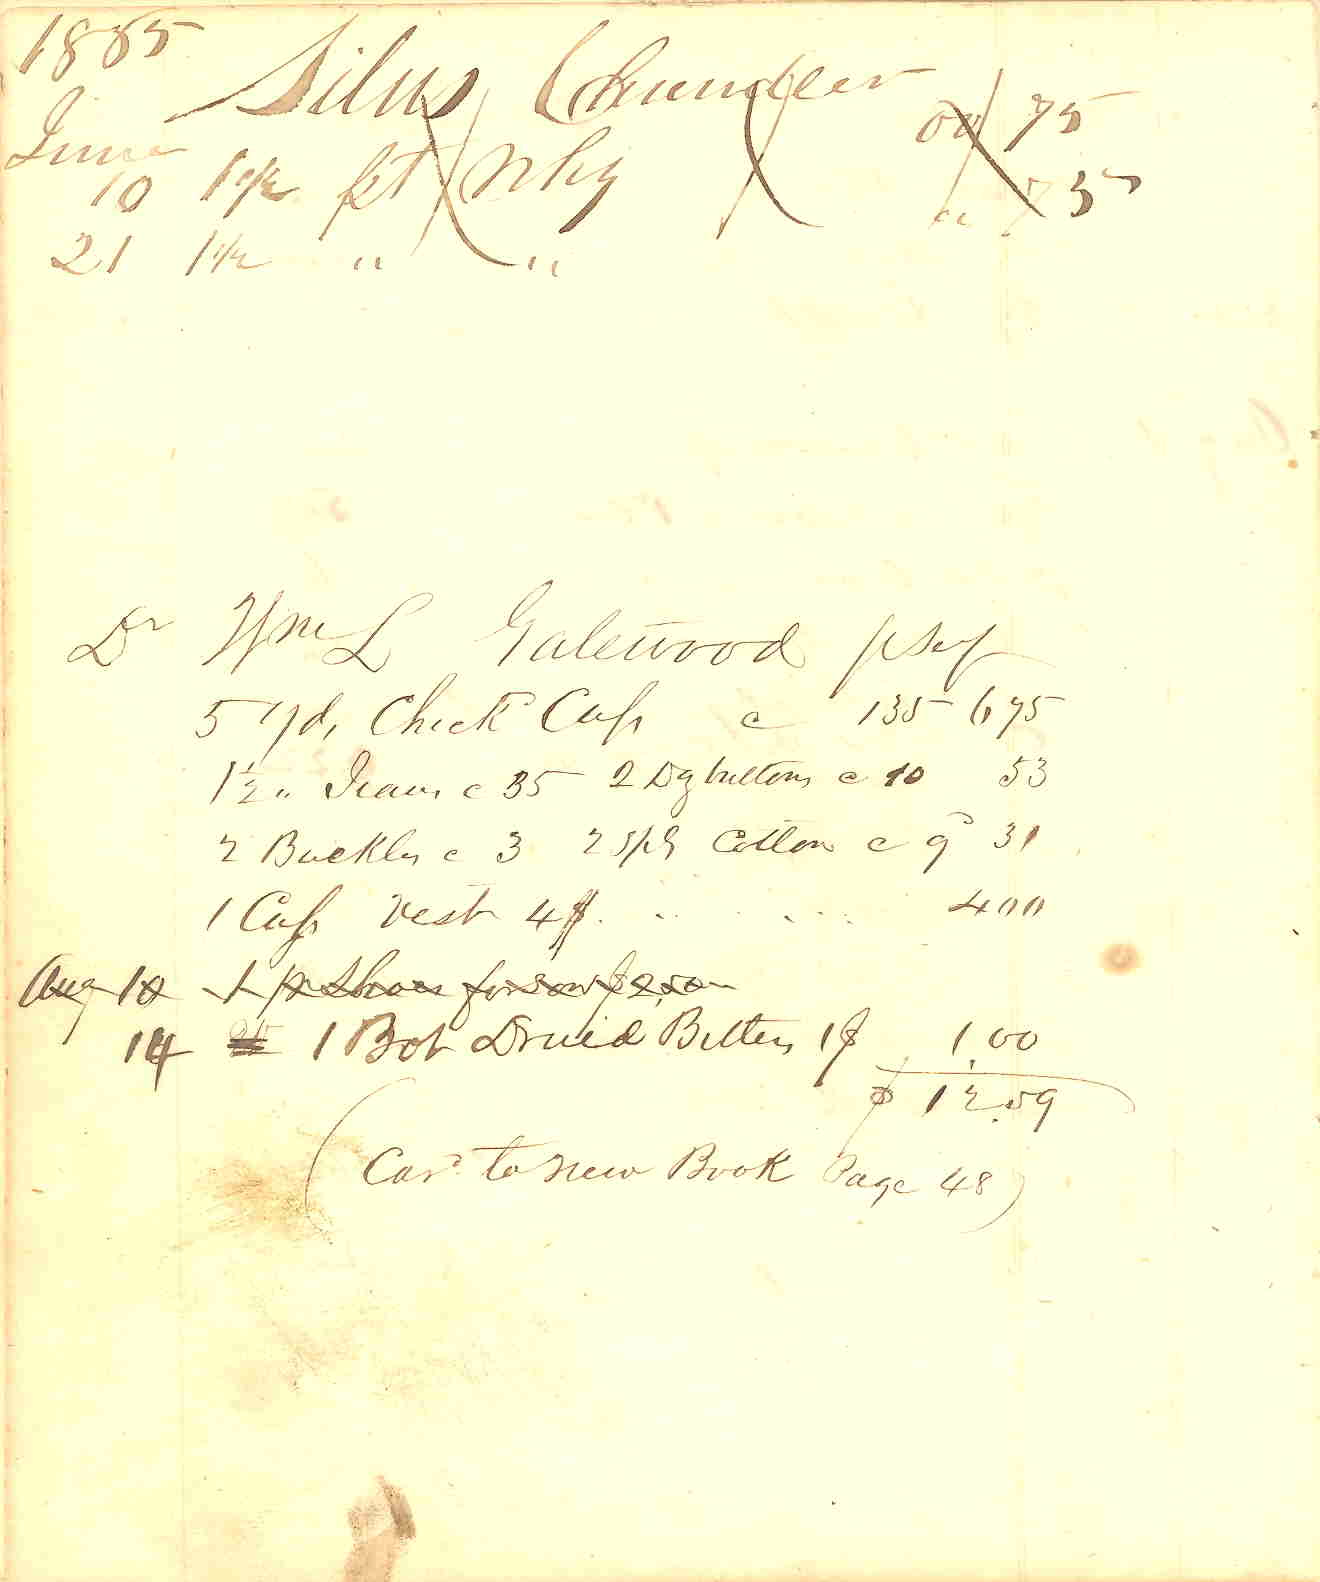 1885
Silus Chandler
June 00 75
10 1 1/2 pt Why " 75
21 1 1/2 " "
Dr Wm L Gatewood
5 yds Check Cass c 135 6 75
1 1/2 " Jeans c 35 2 Dz buttons c 10 53
2 Buckles c 3 2 Spls Cotton c 9 31
1 Cass Vest 4$ 4 00
Aug 10 1 pr Shoes for son $2.50
14 1 Bot Druid Bitters 1$ 1.00
$ 12.59
(Card to new Book Page 48)